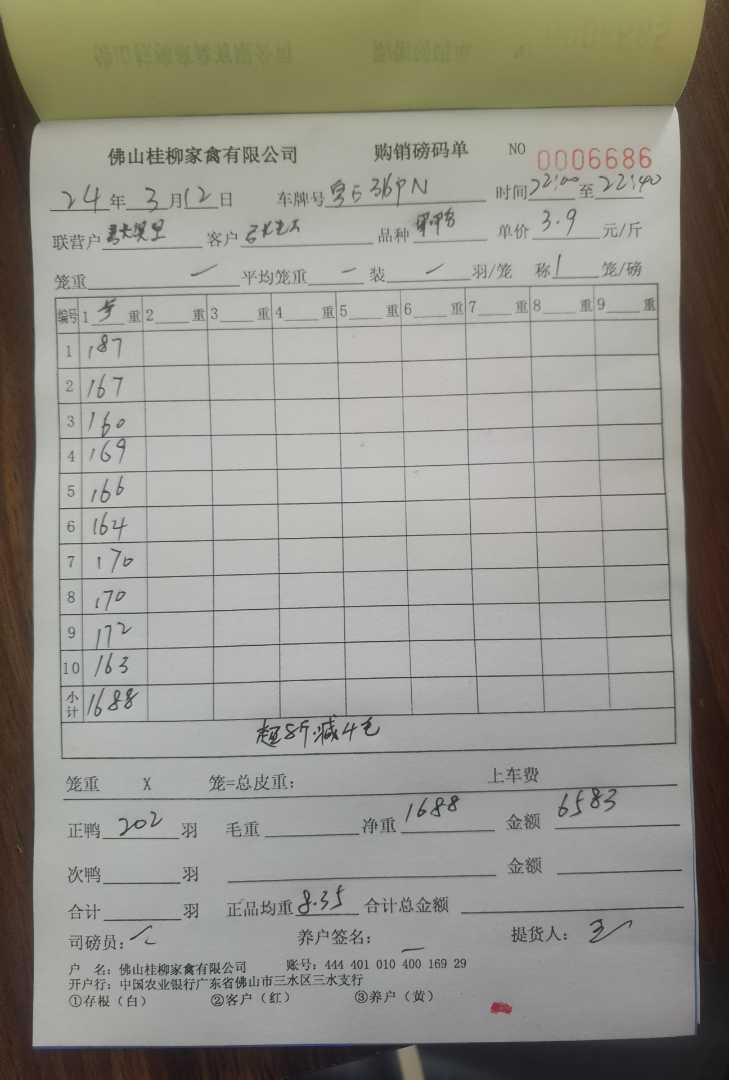 佛山桂柳家禽有限公司 购销磅码单 NO 0006686
24年3月12日 车牌号 E·36PN 时间22:00至22:40
联营户 客户 品种 单价3.9元/斤
笼重 一 平均笼重 一 装 一 羽/笼 称1笼/磅
编号 1 重 2 重 3 重 4 重 5 重 6 重 7 重 8 重 9 重
1 187
2 167
3 160
4 169
5 166
6 164
7 170
8 170
9 172
10 163
小计 1688
超8斤减4毛
笼重 X 笼=总皮重: 上车费
正鸭202羽 毛重 净重1688 金额6583
次鸭 羽 金额
合计 羽 正品均重8.35 合计总金额
司磅员: 养户签名: 提货人:
户 名:佛山桂柳家禽有限公司 账号:444 401 010 400 169 29
开户行:中国农业银行广东省佛山市三水区三水支行
①存根(白) ②客户(红) ③养户(黄)